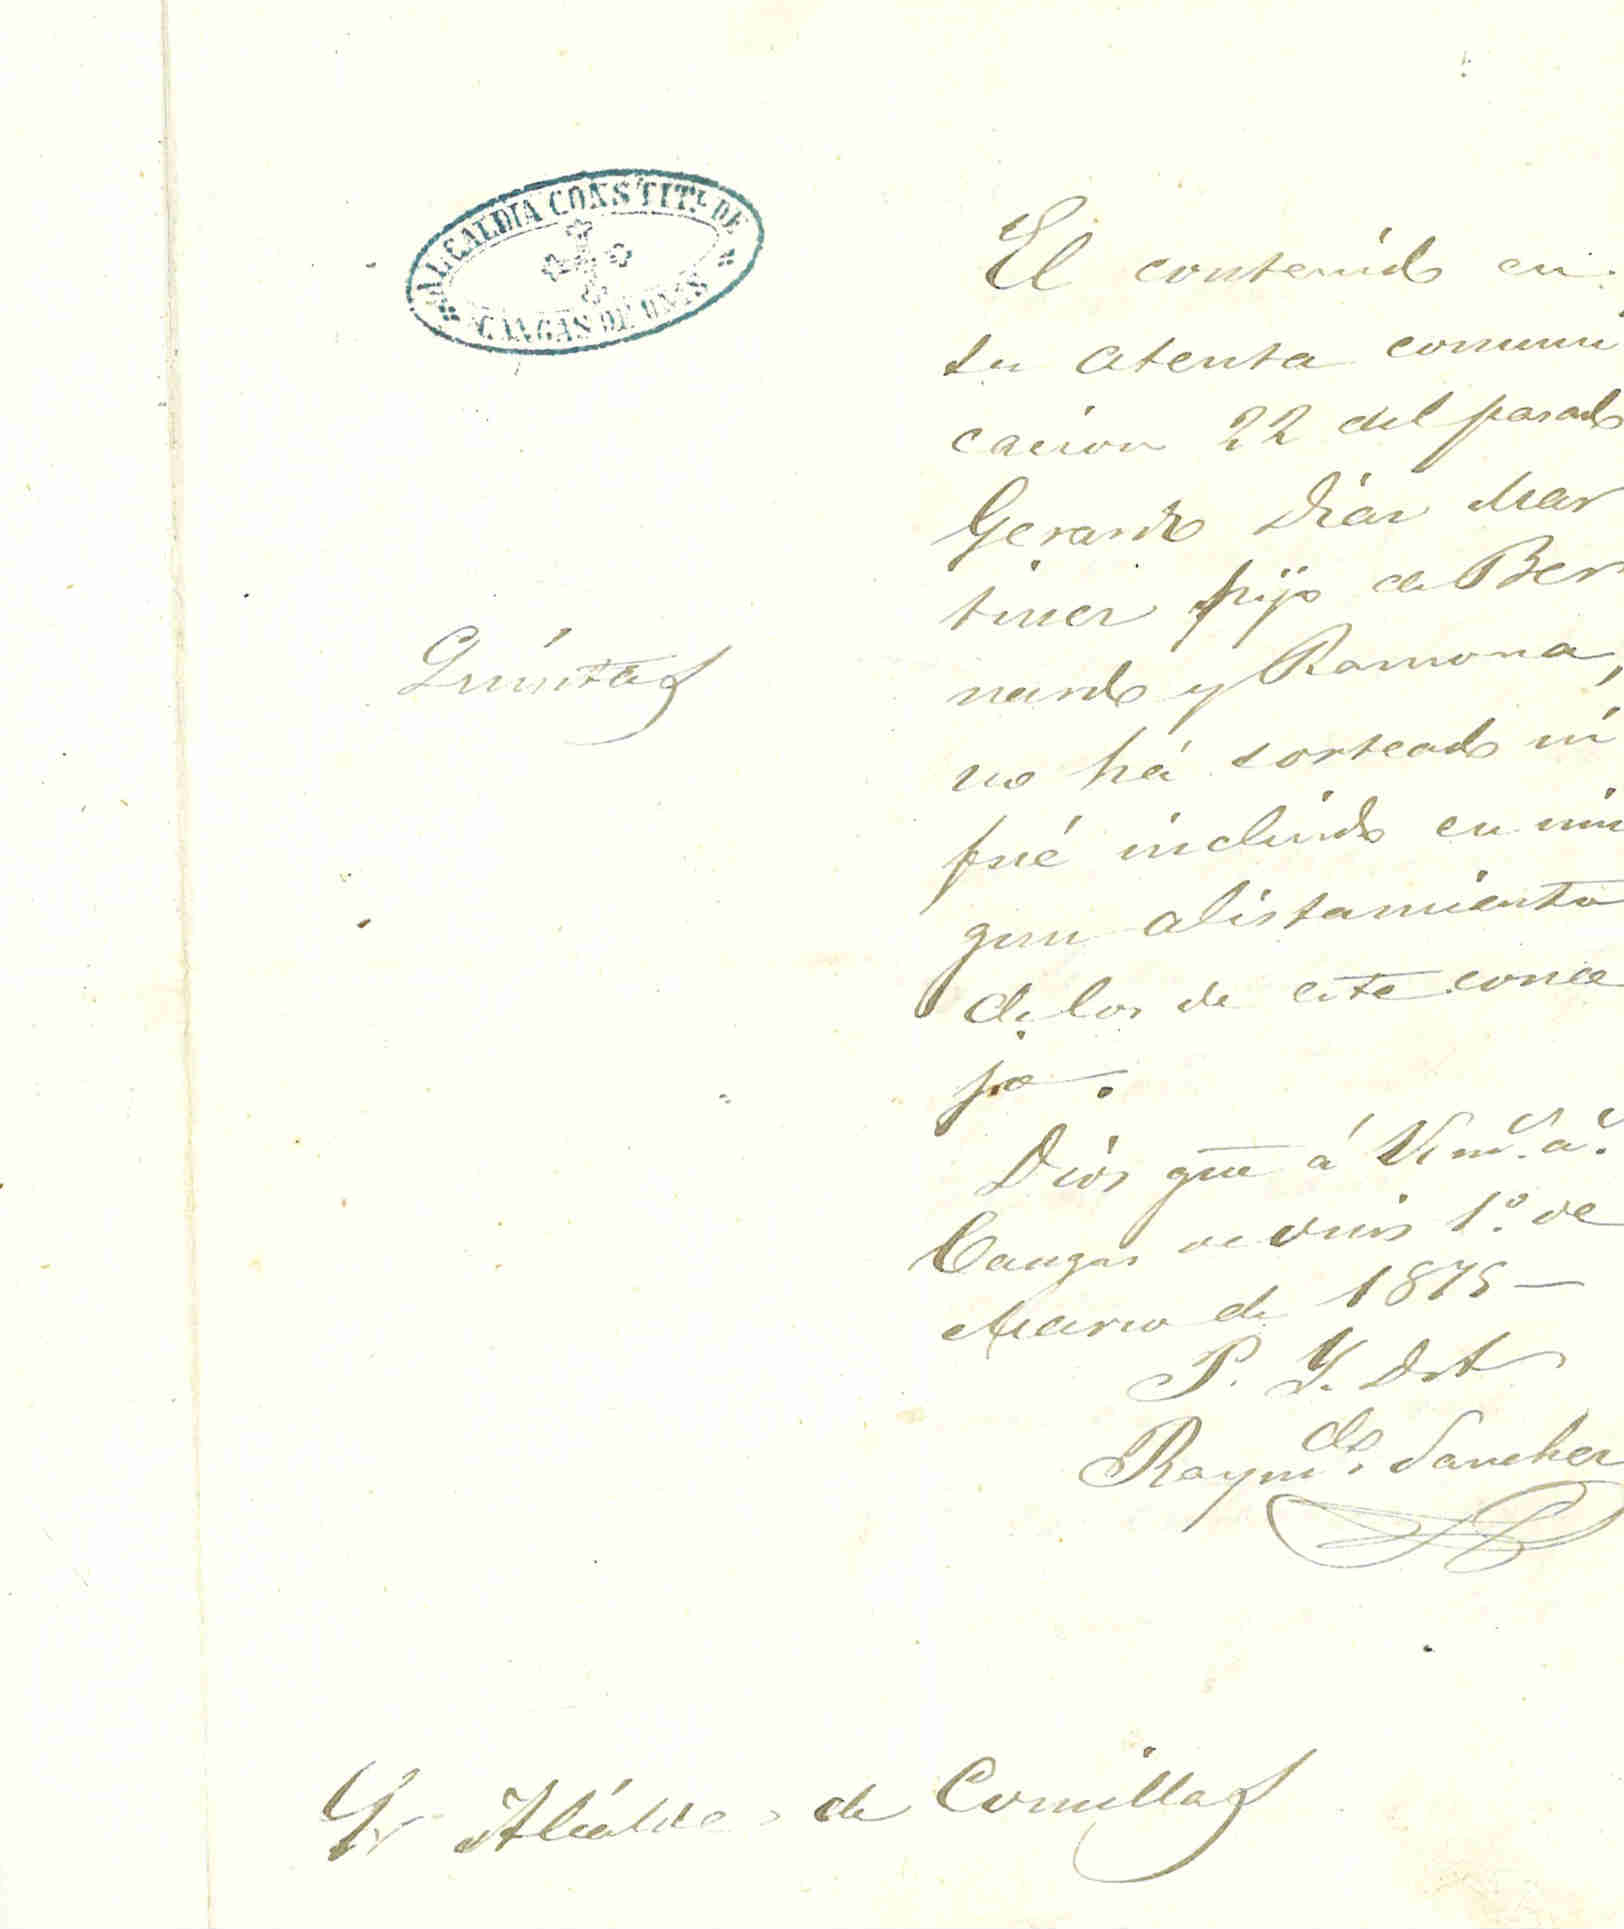 ALCALDIA CONSTIT.L DE
CANGAS DE ONIS
El contenido en
su atenta comuni
cacion 22 del pasado
Gerardo Diaz Mar
tinez hijo de Ber
nardo y Ramona,
no há sorteado ni
fué incluido en nin
gun alistamiento
de los de este conce
jo.
Quintas
Dios gue á V. m.s a.s
Cangas de Onis 1.º de
Marzo de 1875 —
P. Y. Dt
Raym.do Sanchez
Sr Alcálde de Comillas